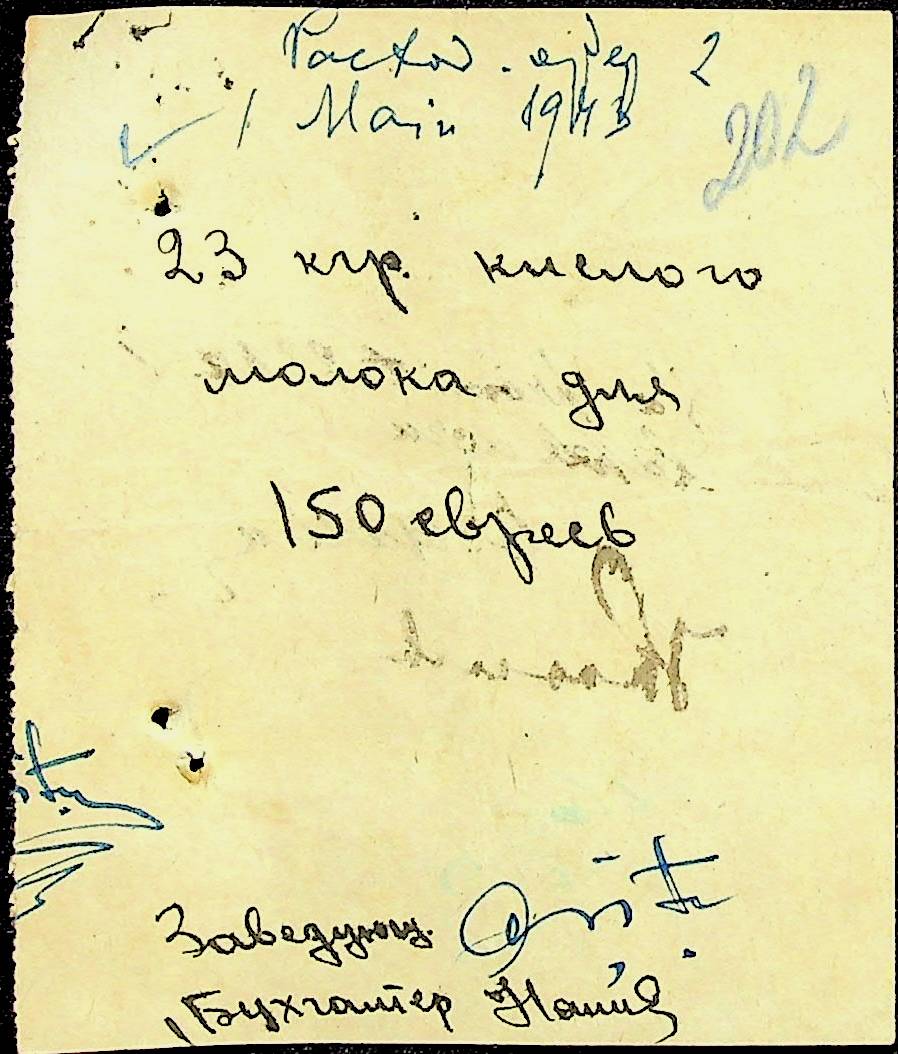 Расход. ордер 2
1 Mai 1943
202
23 кгр. кислого
молока для
150 евреев
Заведующ.
Бухгалтер